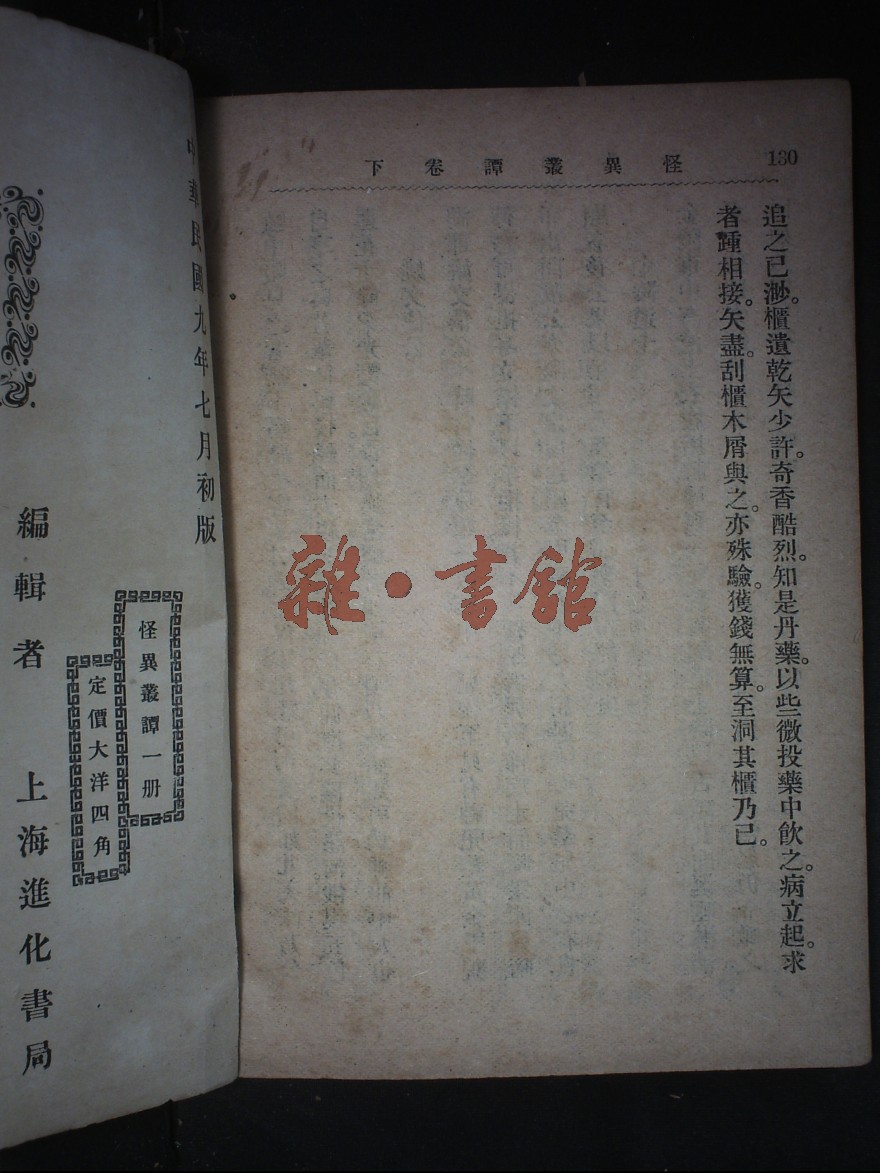 怪異叢譚卷下 130
追之已渺。櫃遺乾矢少許。奇香酷烈。知是丹藥。以些微投藥中飲之。病立起。求
者踵相接。矢盡。刮櫃木屑與之。亦殊驗。獲錢無算。至洞其櫃乃已。
中華民國九年七月初版
怪異叢譚一册
定價大洋四角
編輯者 上海進化書局
雜·書館